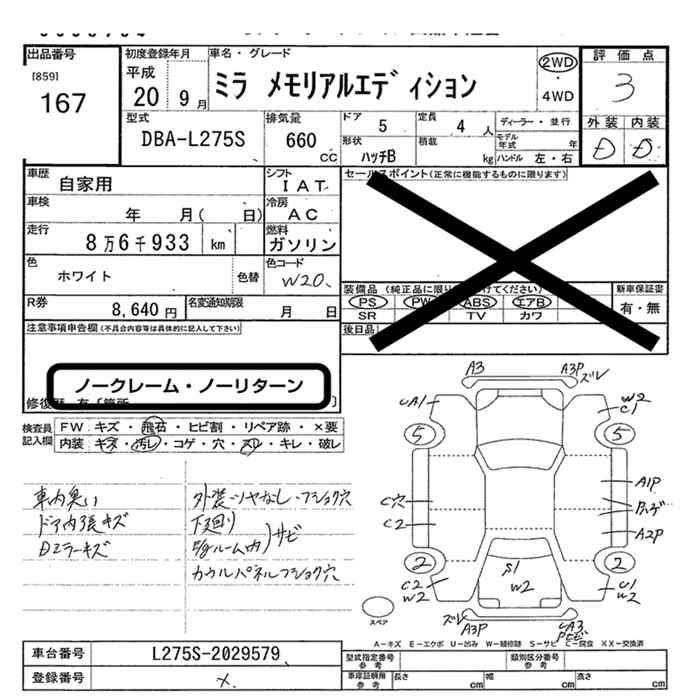 出品番号
[859]
167
初度登録年月
平成
20 9月
車名・グレード
ミラ メモリアルエディション
2WD
・
4WD
評価点
3
外装 内装
D D
型式
DBA-L275S
排気量
660
CC
ドア
5
定員
4人
形状
ハッチB
積載
kg
ディーラー・並行
モデル年式 年
ハンドル 左・右
車歴
自家用
シフト
IAT
車検
年 月( 日)
冷房
AC
走行
8万6千933 km
燃料
ガソリン
色
ホワイト
色替
色コード
W20
R券
8,640円
名変通知期限
月 日
セールスポイント(正常に機能するものに限ります)
装備品(純正品に限り
けてください)
PS PW ABS エアB
SR TV カワ
新車保証書
有・無
後日品
注意事項申告欄(不具合内容等は具体的に記入して下さい)
ノークレーム・ノーリターン
修復歴
検査員記入欄
FW キズ・飛石・ヒビ割・リペア跡・×要
内装 キズ・汚レ・コゲ・穴・スレ・キレ・破レ
車内臭い
ドア内張キズ
Dミラーキズ
外装ツヤなし・フショク穴
下廻り
E/gルーム内
サビ
カウルパネルフショク穴
A3 A3P ズレ
UA1 W2 C1
5 5
C穴 A1P
C2
A2P
2 2
C2 W2 S1 W2 U1 W2
ズレ A3P UA3 Pヒビ
スペア
A－キズ E－エクボ U－凹み W－補修跡 S－サビ C－腐食 XX－交換済
車台番号 L275S-2029579
登録番号 ×
型式指定番号 参考
類別区分番号 参考
車庫証明用 参考
長さ cm
幅 cm
高さ cm